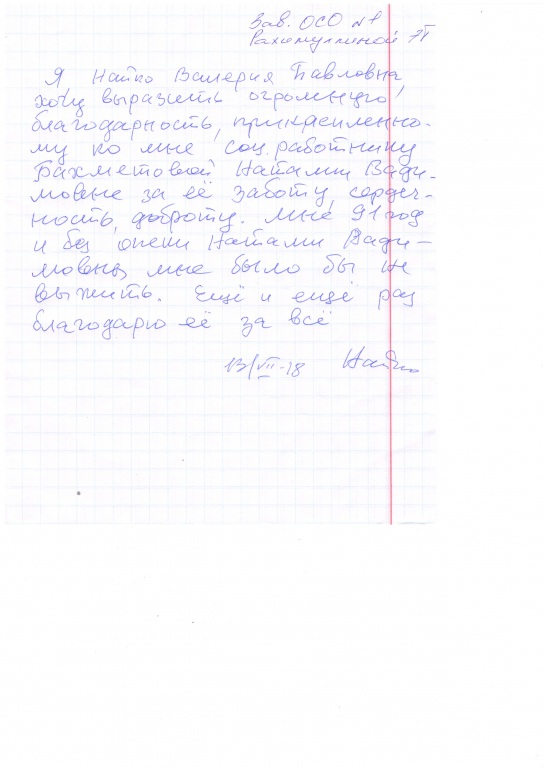 Зав. ОСО №1
Рахимуллиной
Я Найко Валерия Павловна,
хочу выразить огромную
благодарность, прикреплённо-
му ко мне соц. работнику
Бахметовой Наталии Вади-
мовне за её заботу, сердеч-
ность, доброту. Мне 91 год
и без опеки Наталии Вади-
мовны мне было бы не
выжить. Ещё и ещё раз
благодарю её за всё
13/VII-18 Найко